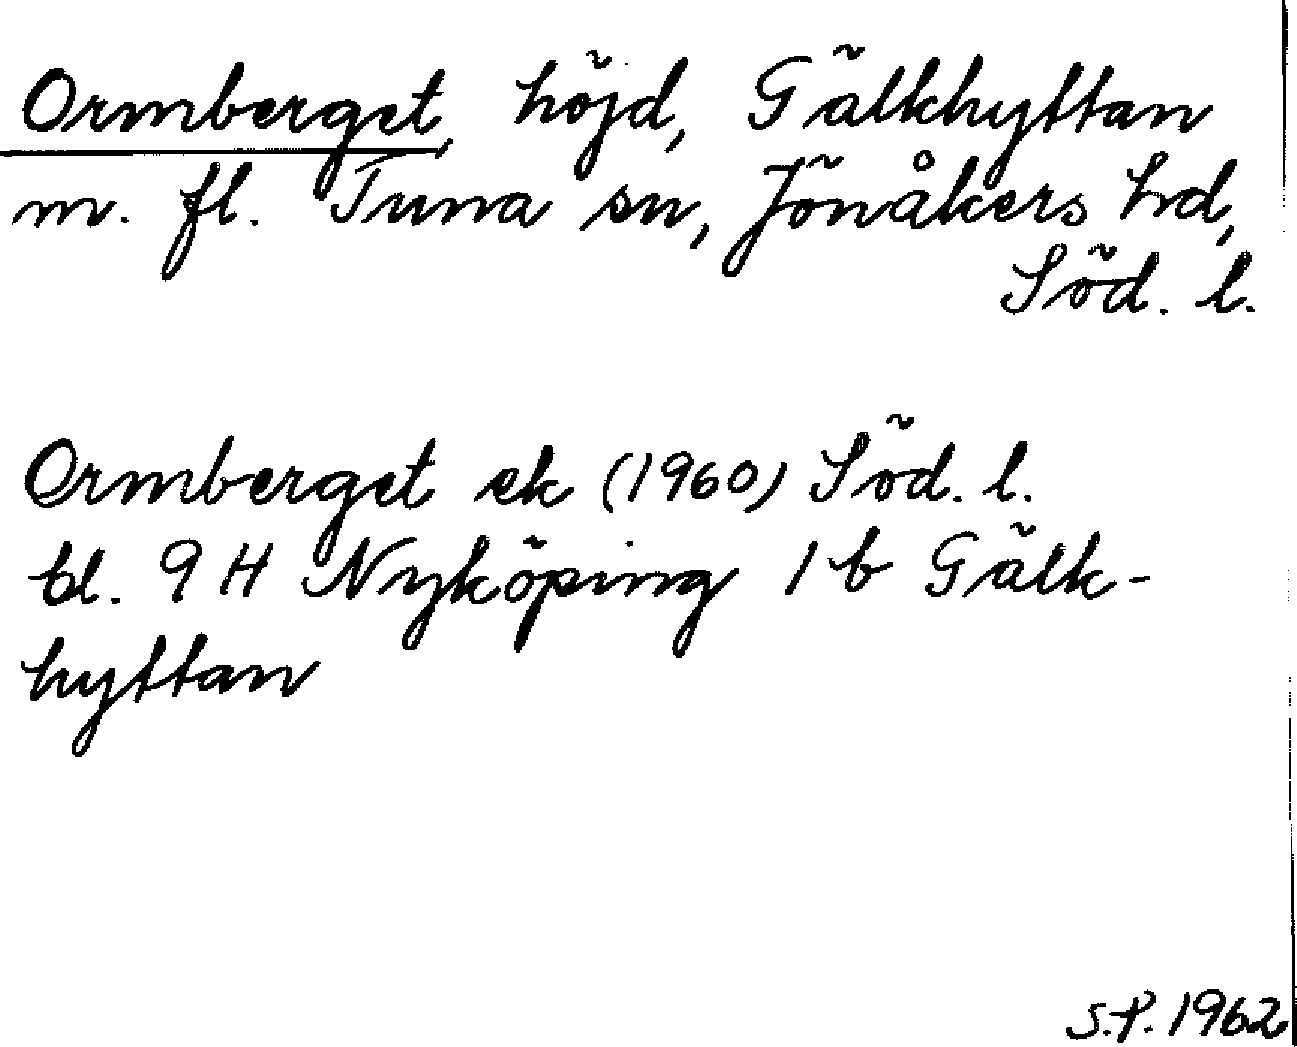 Ormberget, höjd, Gälkhyttan
m. fl. Tuna sn, Jönåkers hd,
Söd. l.
Ormberget ek (1960) Söd. l.
bl. 9 H Nyköping 1 b Gälk-
hyttan
S.P. 1962